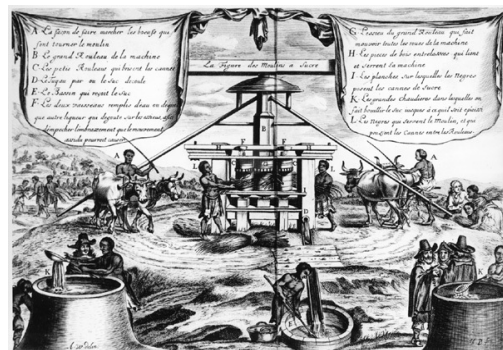 A La façon de faire marcher les bœufs qui
font tourner le moulin
B Le grand Rouleau de la machine
C Les petis Rouleaux qui brisent les cannes
D Tuyau par ou le suc découle
E Le Bassin qui reçoit le suc
F Les deux vaisseaux remplis deau ou de quel
que autre liqueur qui degoute sur les essieux, affin
dempecher lembrasement que le mouvement
rapide pourroit causer
La Figure des Moulins a Sucre
G Lessieu du grand Rouleau qui fait
mouvoir toutes les roues de la machine
H Les pieces de bois entrelassees qui lient
et serrent la machine
I Les planches sur lesquelles les Negres
posent les cannes de Sucre
K Les grandes chaudieres dans lesquelles on
fait bouillir le suc jusques a ce quil soit epaissi
L Les Negres qui servent le Moulin, et qui
pressent les Cannes entre les Rouleaux
A
B
F
F
A
I
D
K
E
K